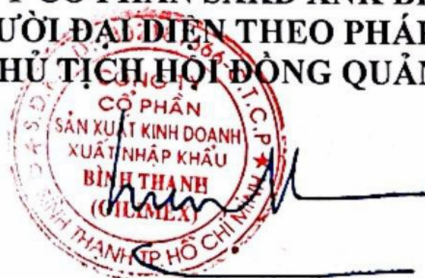 CỔ PHẦN SXKD XNK
ƯỜI ĐẠI DIỆN THEO PHÁ
HỦ TỊCH HỘI ĐỒNG QUẢN
CÔNG TY
CỔ PHẦN
SẢN XUẤT KINH DOANH
XUẤT NHẬP KHẨU
BÌNH THẠNH
(GILIMEX)
BÌNH THẠNH TP. HỒ CHÍ MINH